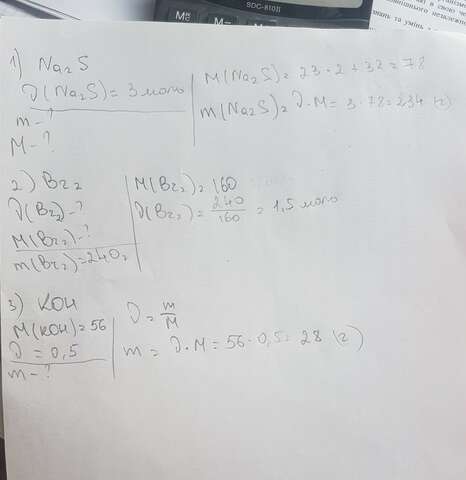 SDC-810II
M±
M-
1) Na₂S
ν(Na₂S) = 3 моль
m - ?
M - ?
M(Na₂S) = 23·2+32 = 78
m(Na₂S) = ν·M = 3·78 = 234 (г)
2) Br₂
ν(Br₂) - ?
M(Br₂) - ?
m(Br₂) = 240г
M(Br₂) = 160
ν(Br₂) = 240/160 = 1,5 моль
3) KOH
M(KOH) = 56
ν = 0,5
m - ?
ν = m/M
m = ν·M = 56·0,5 = 28 (г)